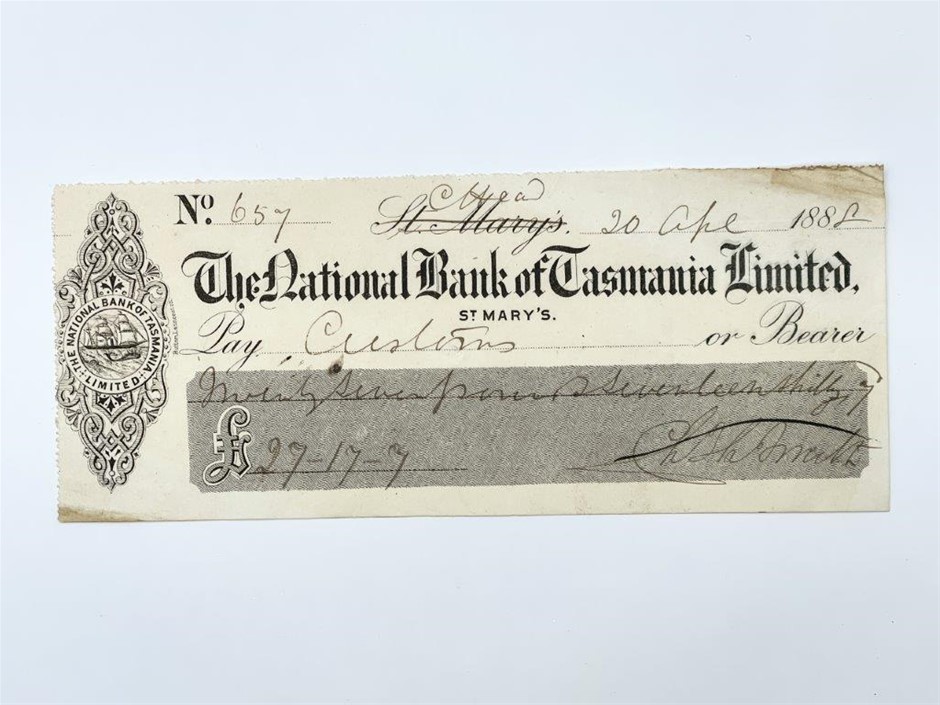 No. 657
C Head
St. Mary's. 20 Apl 1888
The National Bank of Tasmania Limited,
ST MARY'S.
Pay Customs or Bearer
Twenty Seven pounds Seventeen Shillgs 7
£ 27-17-7
THE NATIONAL BANK OF TASMANIA LIMITED.